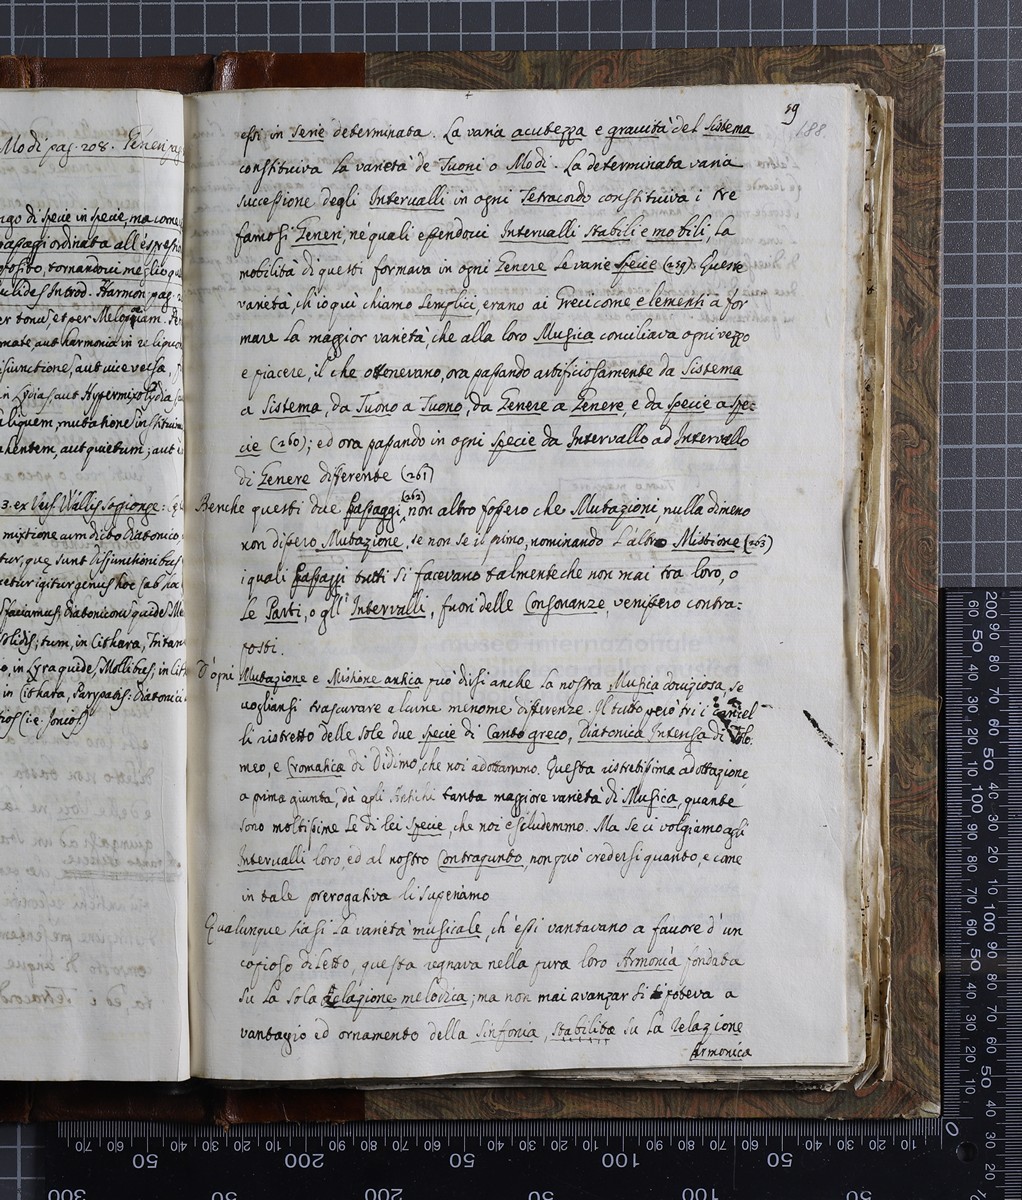 Modi pag. 208. Generi pag
ngo di specie in specie, ma come
passagi ordinata all'espressi
posito, tornandoci meglio qu
uclides Introd. Harmon. pag.
er tonu, et per Melopœiam.
mate, aut harmonia in re liquo
isiunctione, aut vice versa,
in Lydia, aut Hypermixolydia
aliquem, mutatione instituim
ahentem, aut quietum; aut
3. ex Vers. Wallis soggionge:
mixtione cum dicto Diatonico,
tur, que sunt Disiunctionibus
cetur igitur genus hoc (ab ha
faciamus, Diatonicon quide Me
solidis; tum, in Cithara, Tritan
o, in Lyra quide, Mollibus, in Cith
in Cithara, Parypatis: Diatonici
rios (ie. Ionios)
59
188.
essi in serie determinata. La varia acutezza e gravità del Sistema
constituiva la varietà de Tuoni o Modi. La determinata varia
successione degli Intervalli in ogni Tetracordo constituiva i tre
famosi Generi, ne' quali essendoci Intervalli stabili e mobili, la
mobilità di questi formava in ogni Genere le varie specie (259). Queste
varietà, ch'io quì chiamo Semplici, erano ai Greci come elementi a for
mare la maggior varietà, che alla loro Musica conciliava ogni vezzo
e piacere, il che ottenevano, ora passando artificiosamente da Sistema
a Sistema, da Tuono a Tuono, da Genere a Genere, e da specie a spe:
cie (260); ed ora passando in ogni specie da Intervallo ad Intervallo
di Genere differente (261)
Benche questi due passaggi (262) non altro fossero che Mutazioni, nulla dimeno
non dissero Mutazione, se non se il primo, nominando l'altro Mistione (263)
i quali passaggi tutti si facevano talmente che non mai tra loro, o
le Parti, o gl'Intervalli, fuori delle Consonanze, venissero contra:
posti.
D'ogni Mutazione e Mistione antica può dirsi anche la nostra Musica doviziosa, se
vogliansi trascurare alcune minome differenze. Il tutto però tri i cancel
li ristretto delle sole due specie di Canto greco, Diatonica Intensa di Tolo:
meo, e Cromatica di Didimo, che noi adottammo. Questa ristretissima adottazione
a prima giunta, dà agli Antichi tanta maggiore varietà di Musica, quante
sono moltissime le di lei specie, che noi escludemmo. Ma se ci volgiamo agli
Intervalli loro, ed al nostro Contrapunto, non può credersi quanto, e come
in tale prerogativa li superiamo
Qualunque siasi la varietà musicale, ch'essi vantavano a favore d'un
copioso diletto, questa regnava nella pura loro Armonia fondata
su la sola Relazione melodica; ma non mai avanzar si poteva a
vantaggio ed ornamento della Sinfonia, stabilita su la Relazione
Armonica